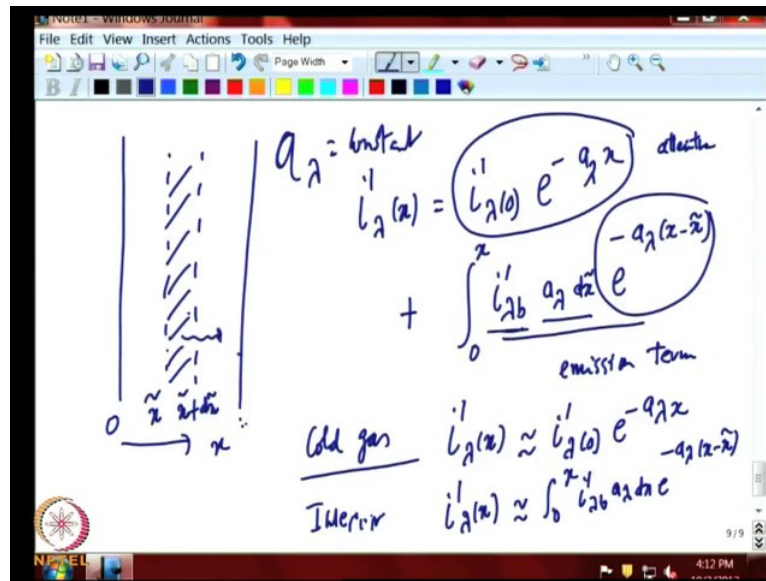 Note1 - Windows Journal
File Edit View Insert Actions Tools Help
Page Width
B I
a_λ = constant
i'_λ(x) = i'_λ(0) e^{-a_λ x}
+ ∫_0^x i'_{λb} a_λ dx̃ e^{-a_λ(x-x̃)}
emission term
0 x̃ x̃+dx̃ x
Cold gas i'_λ(x) ≈ i'_λ(0) e^{-a_λ x}
i'_λ(x) ≈ ∫_0^x i'_{λb} a_λ dx e^{-a_λ(x-x̃)}
9/9
NPTEL
4:12 PM